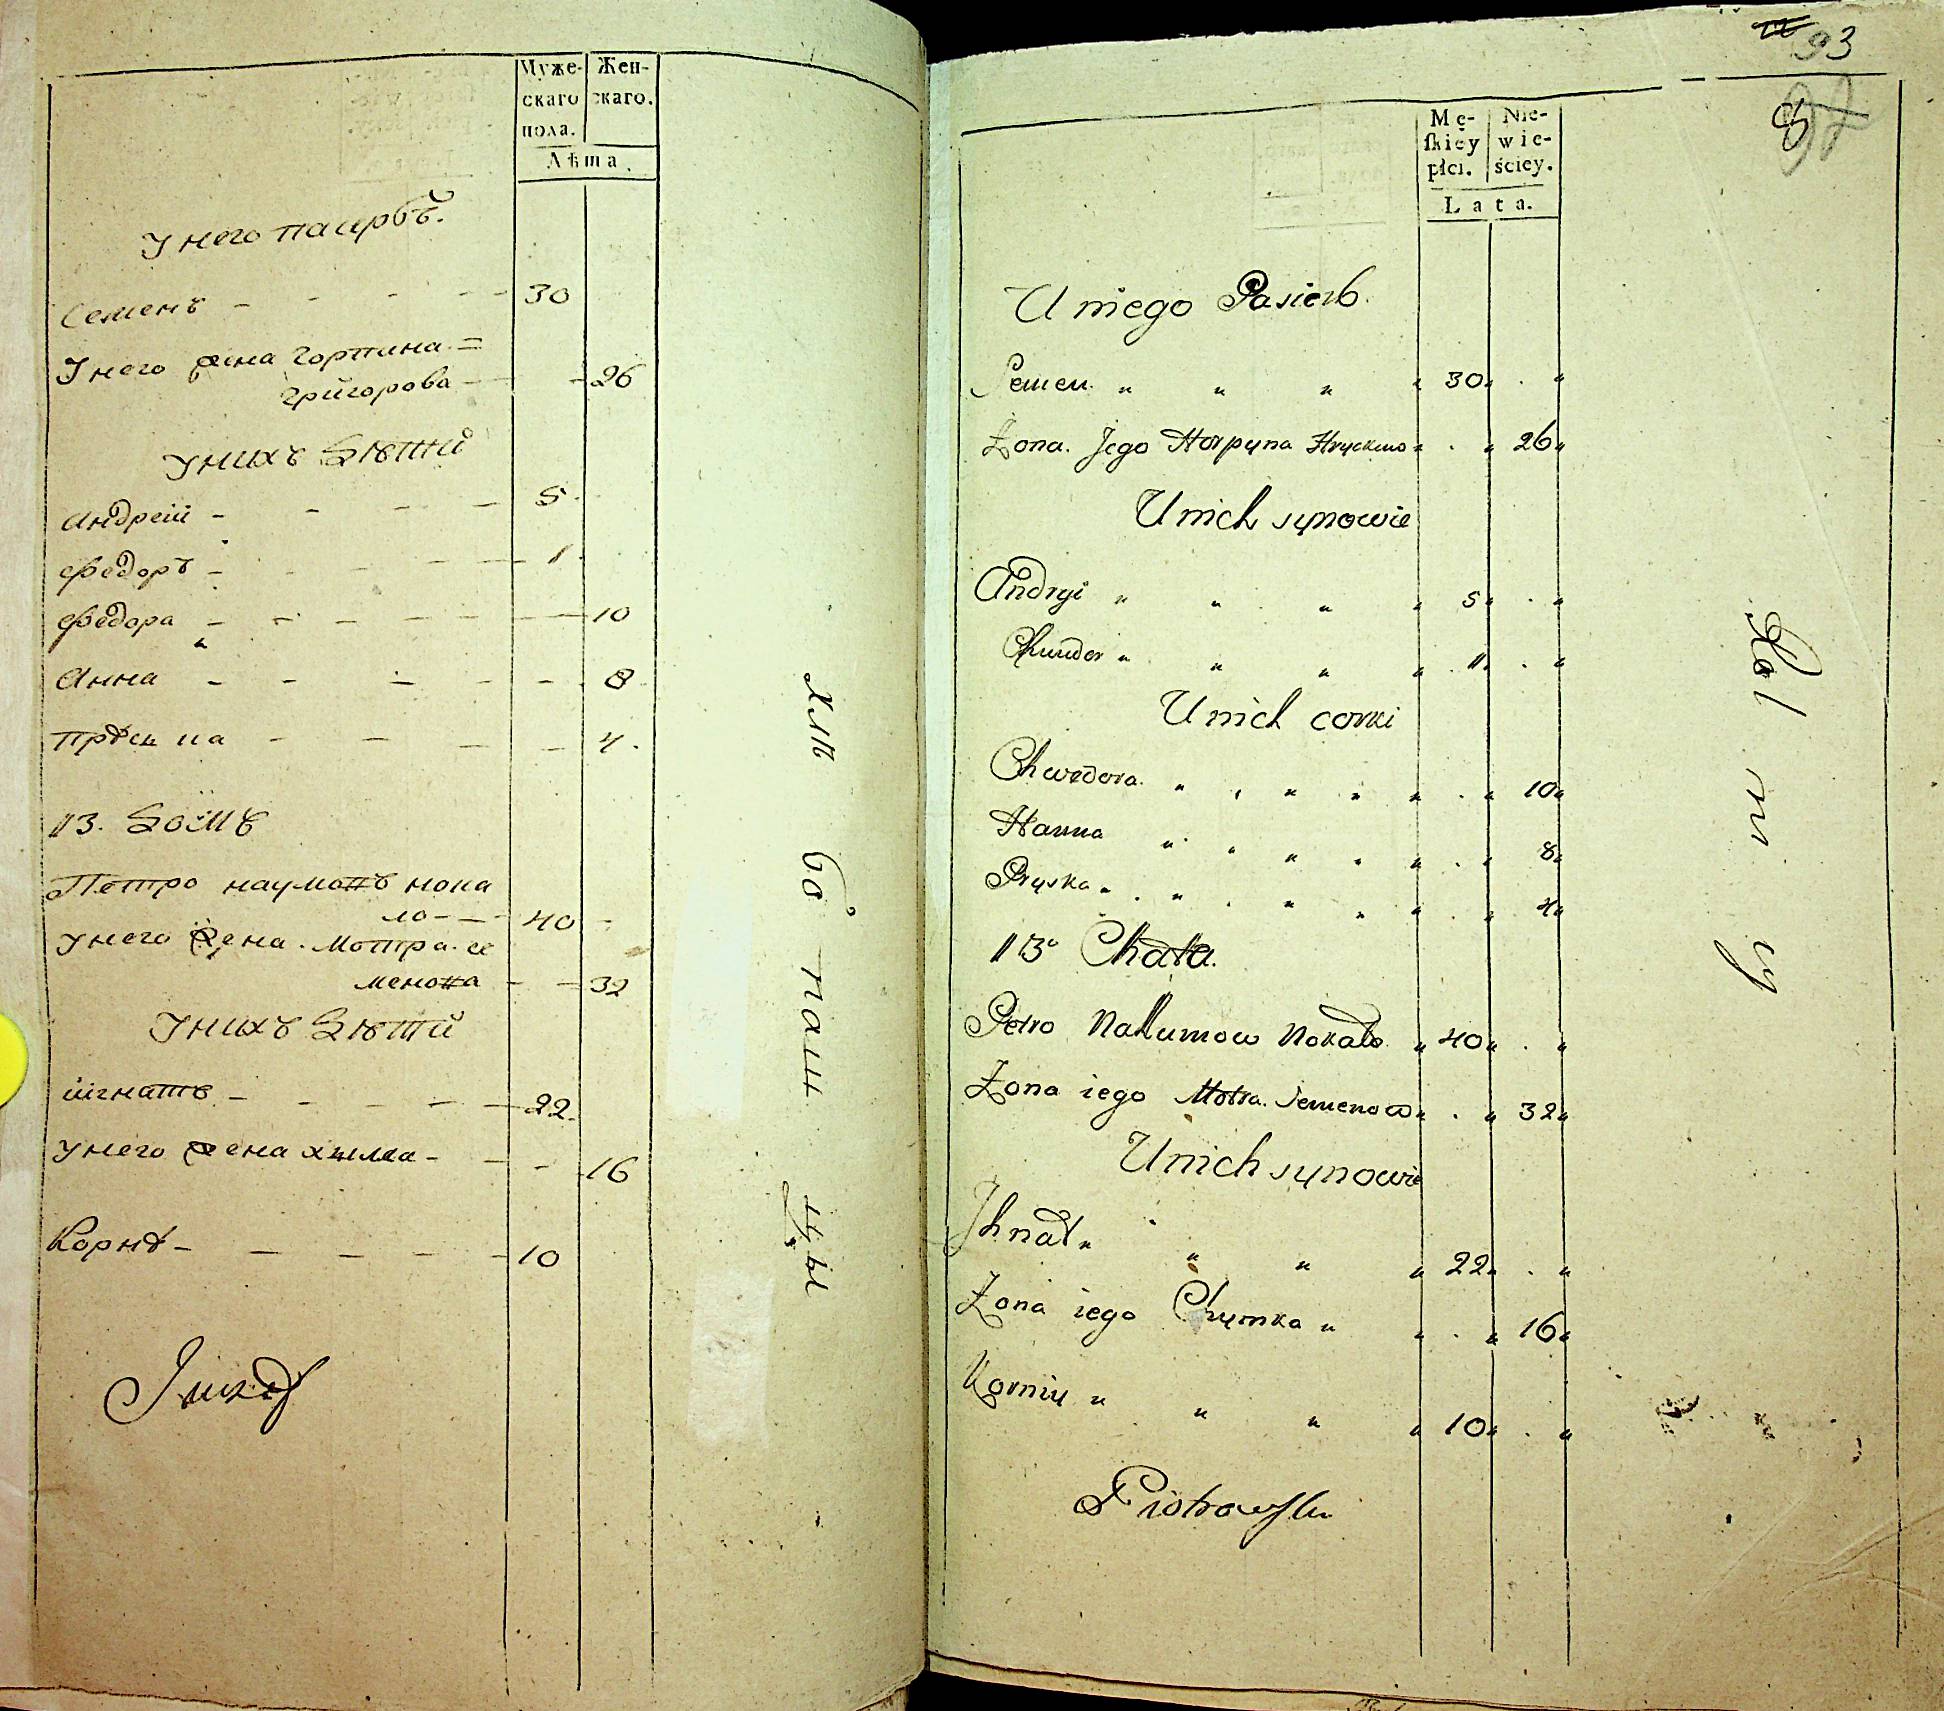 Муже-
скаго
пола.
Жен-
скаго.
Лѣта.
У него пасирбъ.
Семенъ - - - - 30
У него жена Горпина
Григорова - - 26
У нихъ дѣтй
Андрей - - - - 5
Федоръ - - - - 1
Федора - - - - 10
Анна - - - - 8
Прѣська - - - - 4
113. Домъ
Петро Наумовъ
- - 40
У него жена Мотра Се
менова - - 32
У нихъ дѣтй
Игнатъ - - - - 22
У него жена Химка - - - 16
Корнѣ - - - - 10
Хлѣ бо паш цы
93
8
Mę-
skiey
płci.
Nie-
wie-
ściey.
Lata.
U niego Pasierb
Semen " " " " 30 " . "
Żona Jego Horpyna Hryckowa " . " 26 "
U nich synowie
Andryi " " " " 5 " . "
Chwedor " " " " 1 " . "
U nich corki
Chwedora " " " " " . " 10 "
Hanna " " " " " . " 8 "
Pryska " . " . " " " . " 4 "
113 Chata.
Petro Naumow Nokało " 40 " . "
Żona iego Motra Semenow " . " 32 "
U nich synowie
Jhnat " " " " 22 " . "
Żona iego Chymka " " . " 16 "
Korniy " " " " 10 " . "
Rol ni cy
Piotrowski